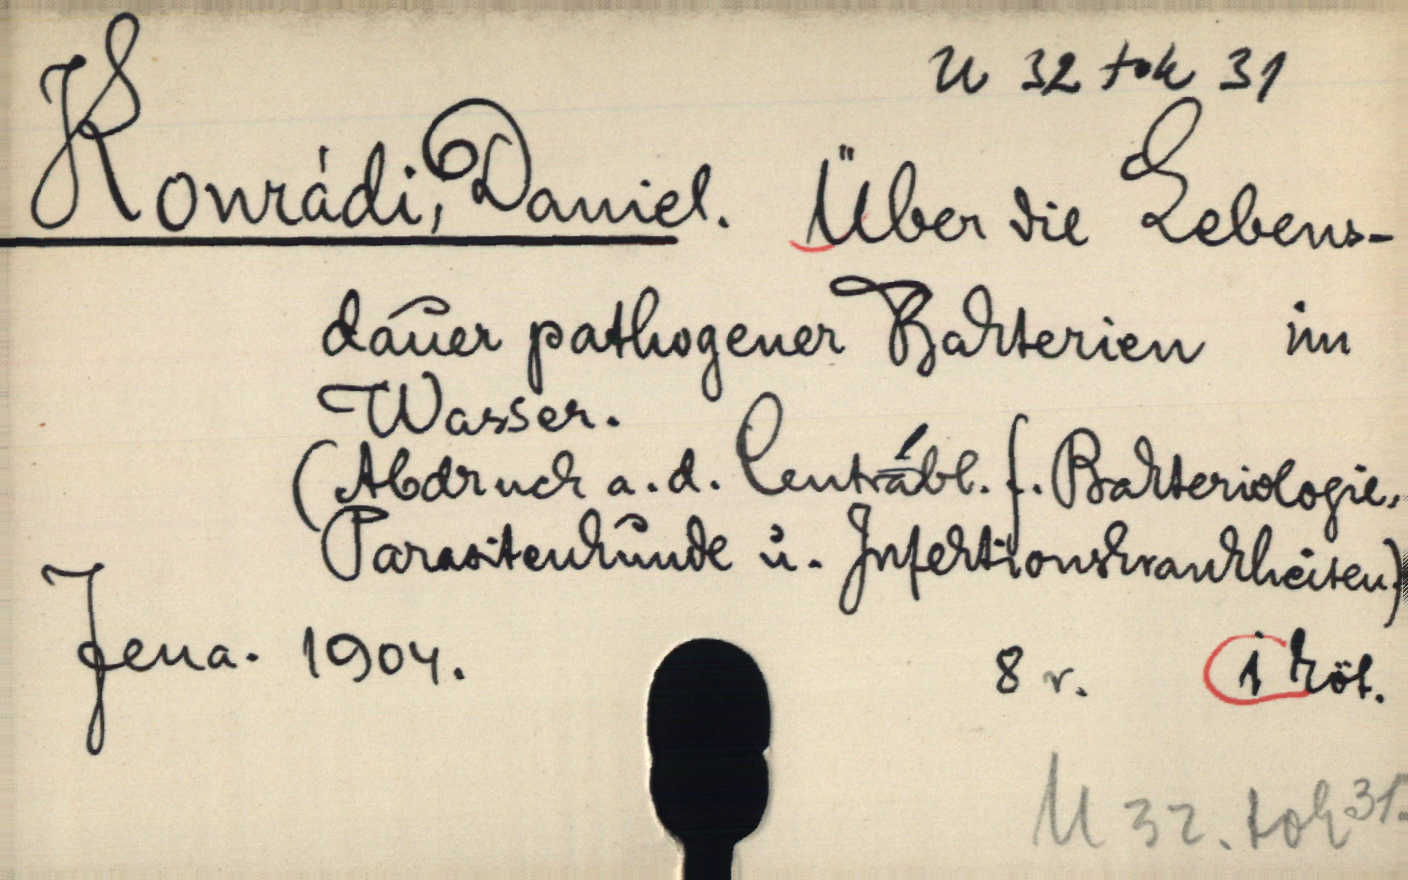 U 32 tok 31
Konrádi, Daniel. Über die Lebens-
dauer pathogener Bakterien im
Wasser.
(Abdruck a. d. Centralbl. f. Bakteriologie,
Parasitenkunde u. Infektionskrankheiten.)
Jena. 1904. 8 r. 1 köt.
U 32. tok 31.